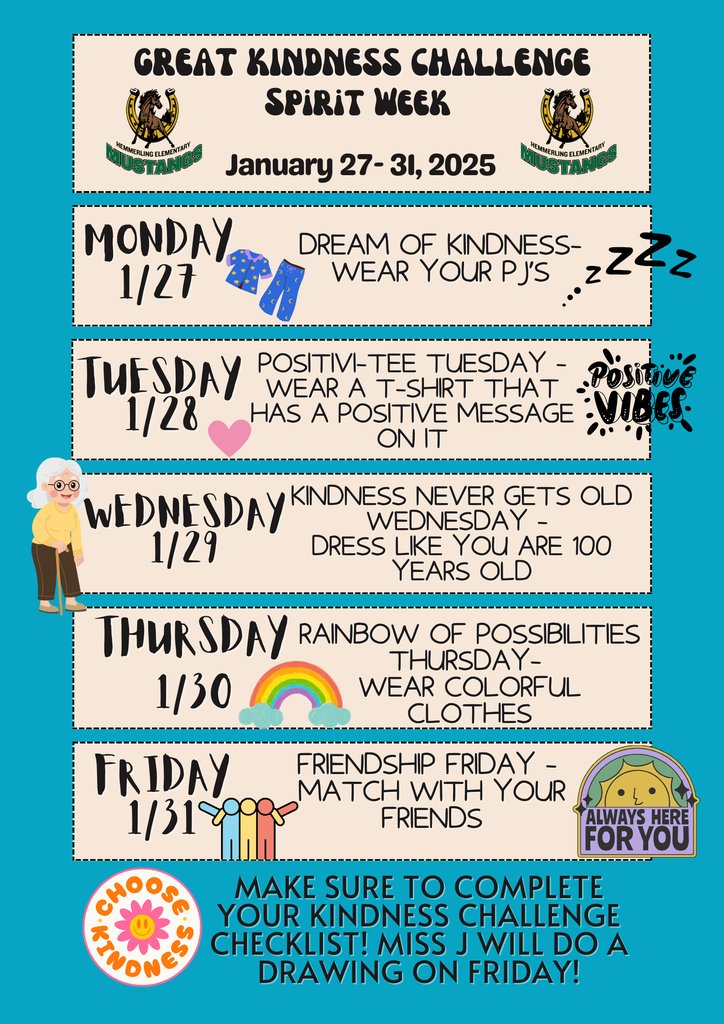 GREAT KINDNESS CHALLENGE
SPIRIT WEEK
HEMMERLING ELEMENTARY
MUSTANGS
HEMMERLING ELEMENTARY
MUSTANGS
January 27- 31, 2025
MONDAY
1/27
DREAM OF KINDNESS-
WEAR YOUR PJ'S
zzzz
TUESDAY
1/28
POSITIVI-TEE TUESDAY -
WEAR A T-SHIRT THAT
HAS A POSITIVE MESSAGE
ON IT
POSITIVE
VIBES
WEDNESDAY
1/29
KINDNESS NEVER GETS OLD
WEDNESDAY -
DRESS LIKE YOU ARE 100
YEARS OLD
THURSDAY
1/30
RAINBOW OF POSSIBILITIES
THURSDAY-
WEAR COLORFUL
CLOTHES
FRIDAY
1/31
FRIENDSHIP FRIDAY -
MATCH WITH YOUR
FRIENDS
ALWAYS HERE
FOR YOU
CHOOSE
KINDNESS
MAKE SURE TO COMPLETE
YOUR KINDNESS CHALLENGE
CHECKLIST! MISS J WILL DO A
DRAWING ON FRIDAY!